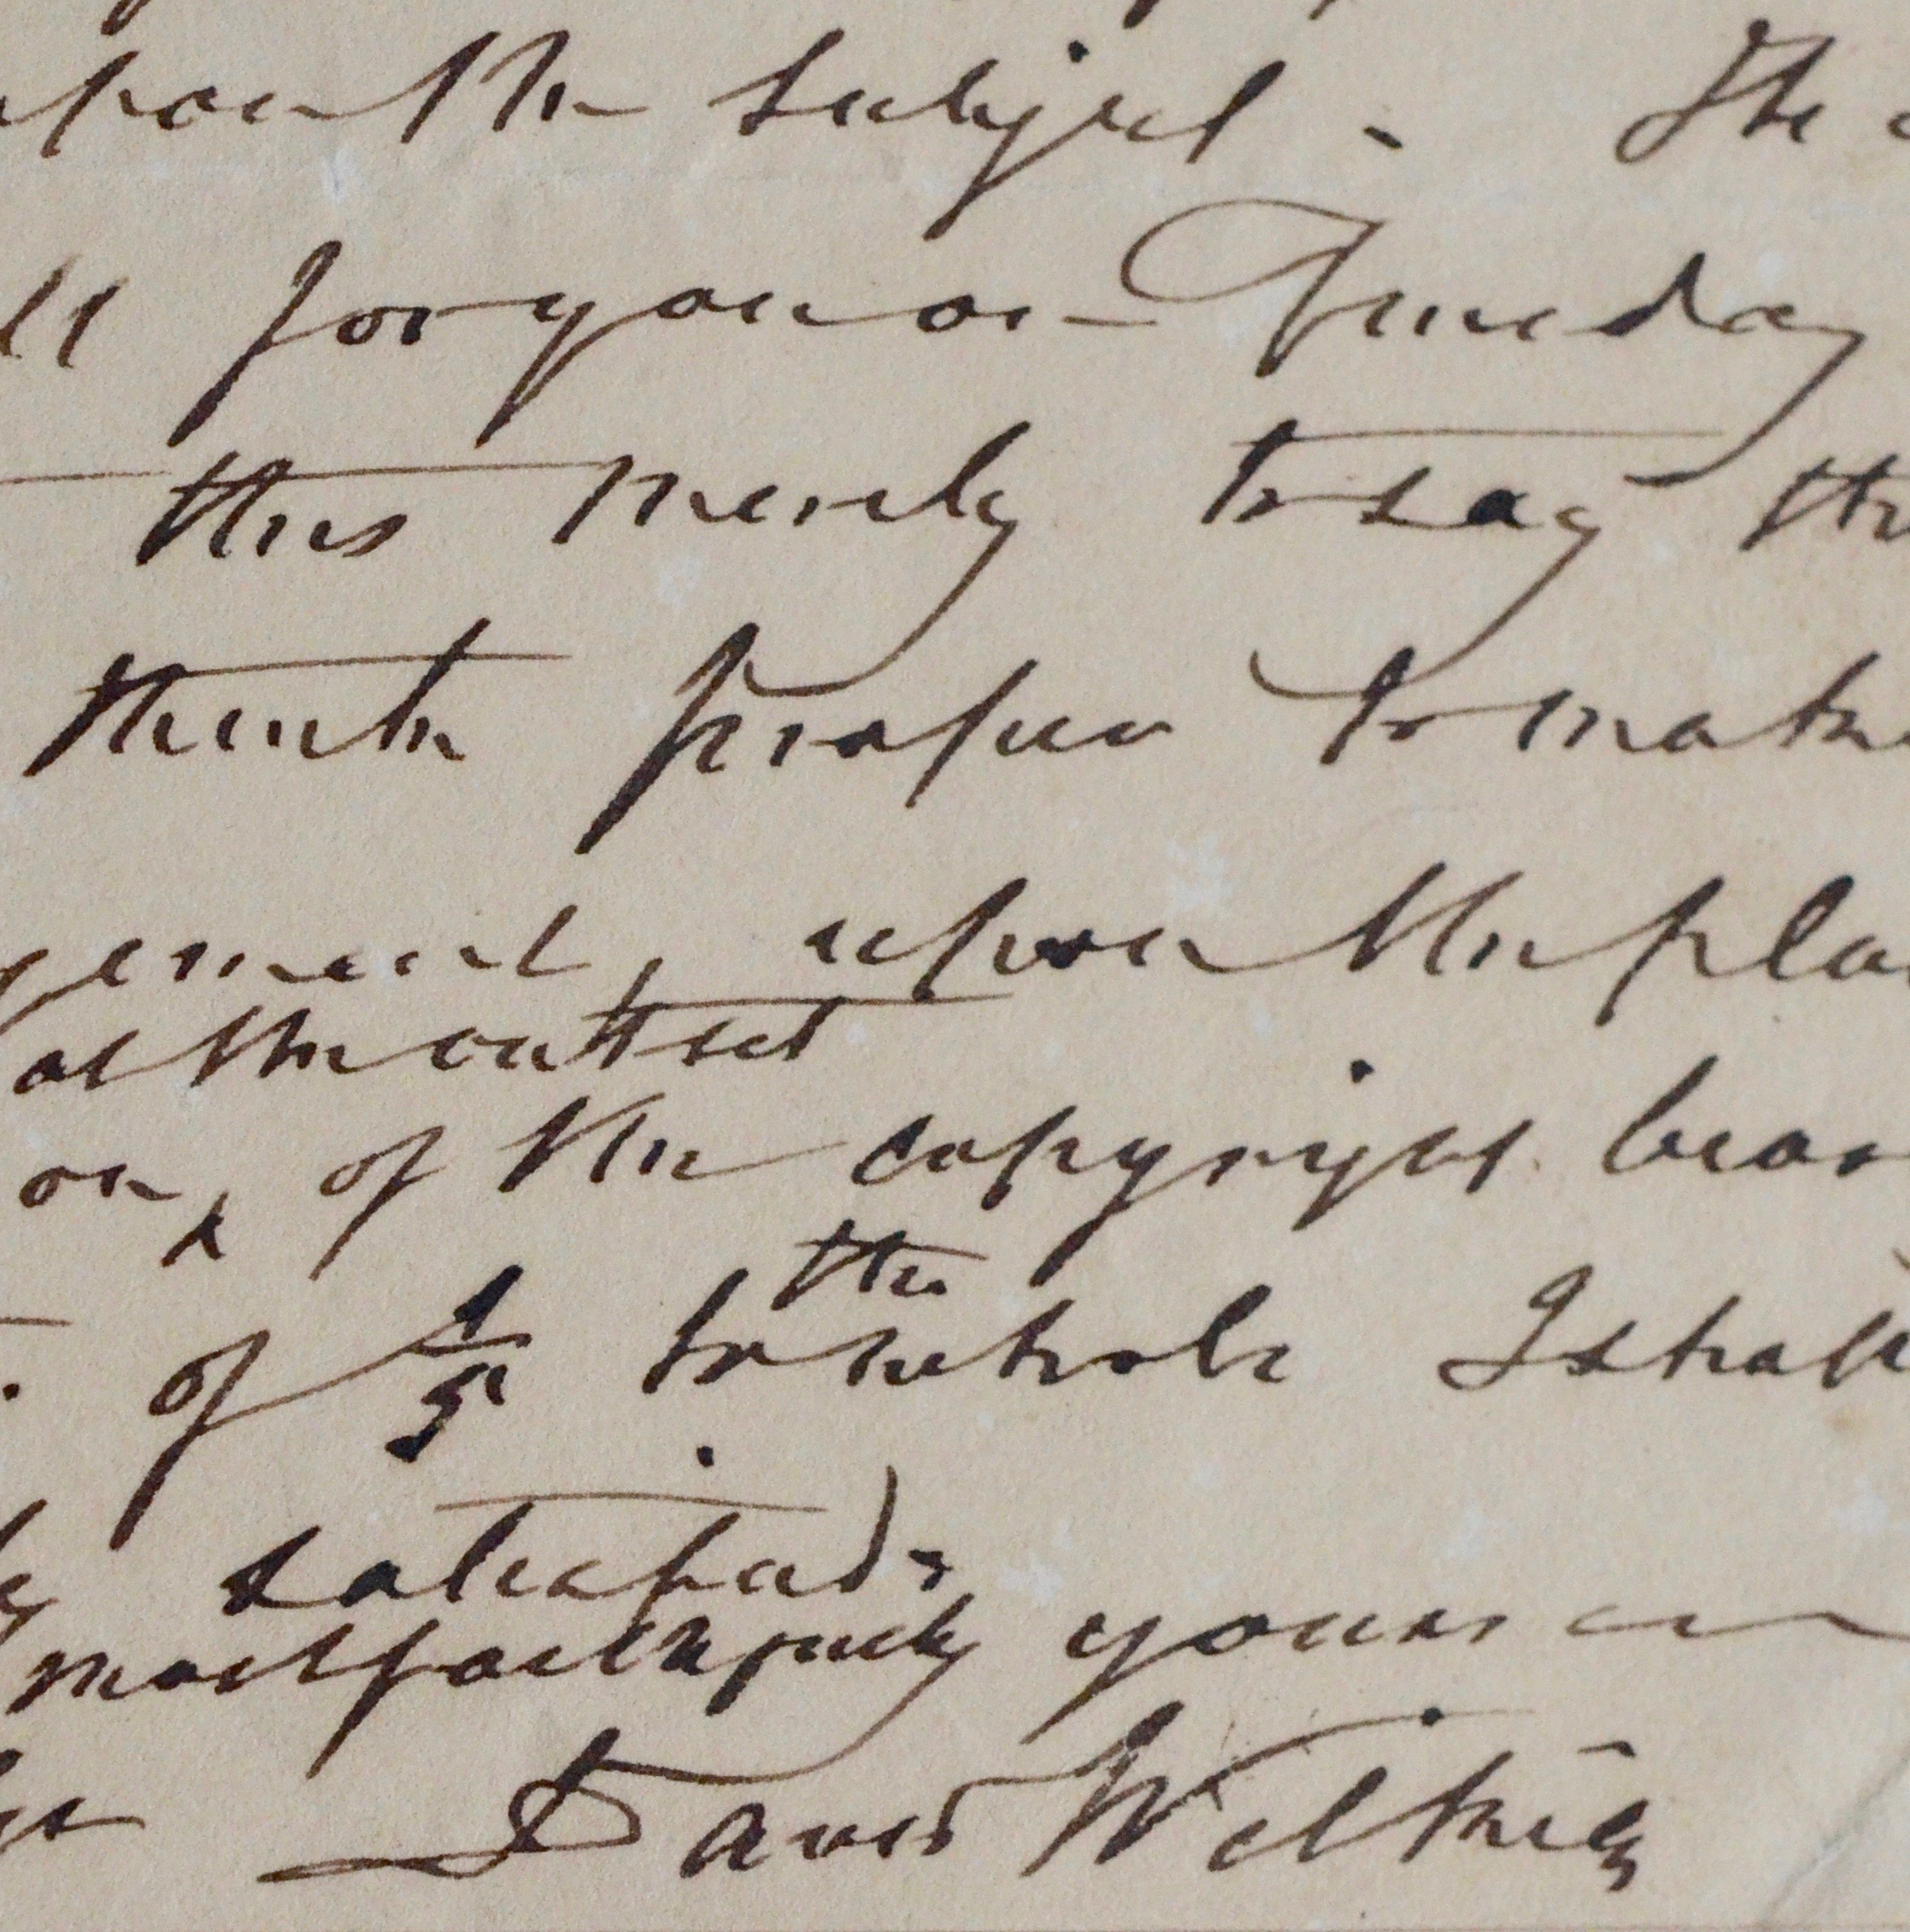 upon the subject. The
ll for you on Tuesday
this merely to say th
think proper to make
gement, upon the pla
at the outset
on, of the copyright
the
of 1/5 to whole I shall
satisfied.
most faithfully yours
David Wilkie